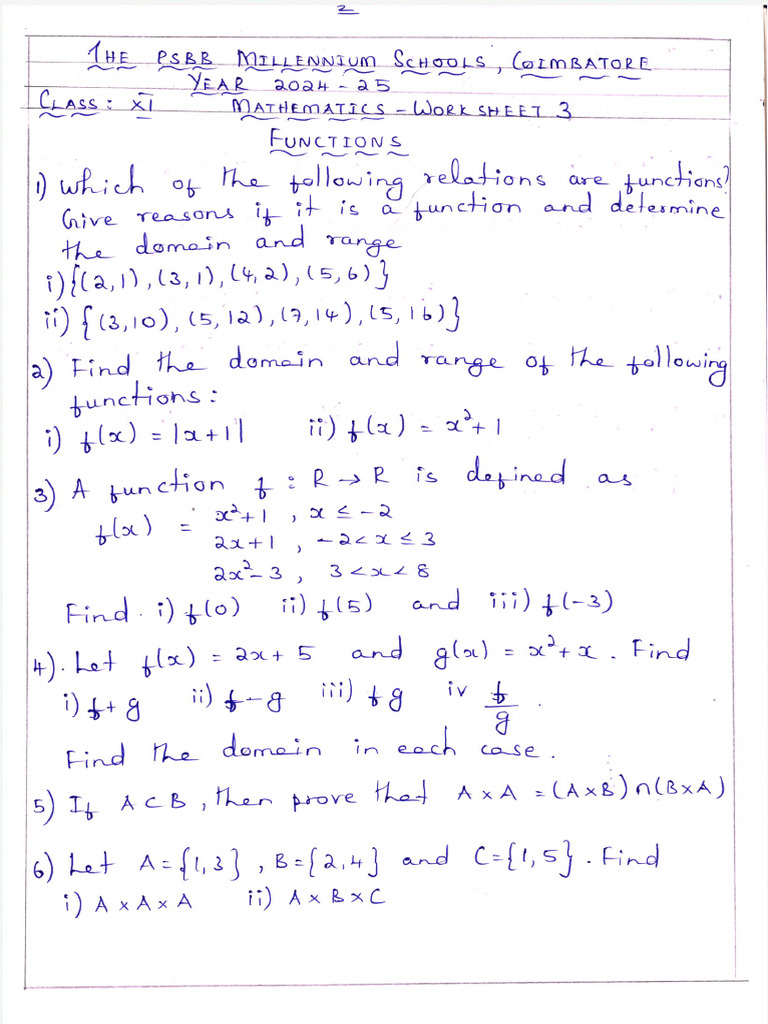 2
THE PSBB MILLENNIUM SCHOOLS, COIMBATORE
YEAR 2024-25
CLASS: XI MATHEMATICS - WORKSHEET 3
FUNCTIONS
1) Which of the following relations are functions?
Give reasons if it is a function and determine
the domain and range
i) {(2,1), (3,1), (4,2), (5,6)}
ii) {(3,10), (5,12), (7,14), (5,16)}
2) Find the domain and range of the following
functions:
i) f(x) = |x+1| ii) f(x) = x²+1
3) A function f : R → R is defined as
f(x) = x²+1 , x ≤ -2
2x+1 , -2<x ≤ 3
2x²-3 , 3<x<8
Find. i) f(0) ii) f(5) and iii) f(-3)
4). Let f(x) = 2x+5 and g(x) = x²+x. Find
i) f+g ii) f-g iii) fg iv f/g.
Find the domain in each case.
5) If A⊂B, then prove that A×A = (A×B)∩(B×A)
6) Let A={1,3}, B={2,4} and C={1,5}. Find
i) A×A×A ii) A×B×C